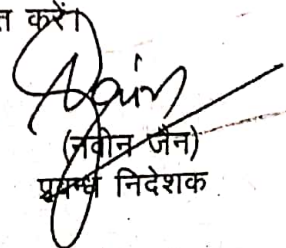 करें।
(नवीन जैन)
प्रबन्ध निदेशक